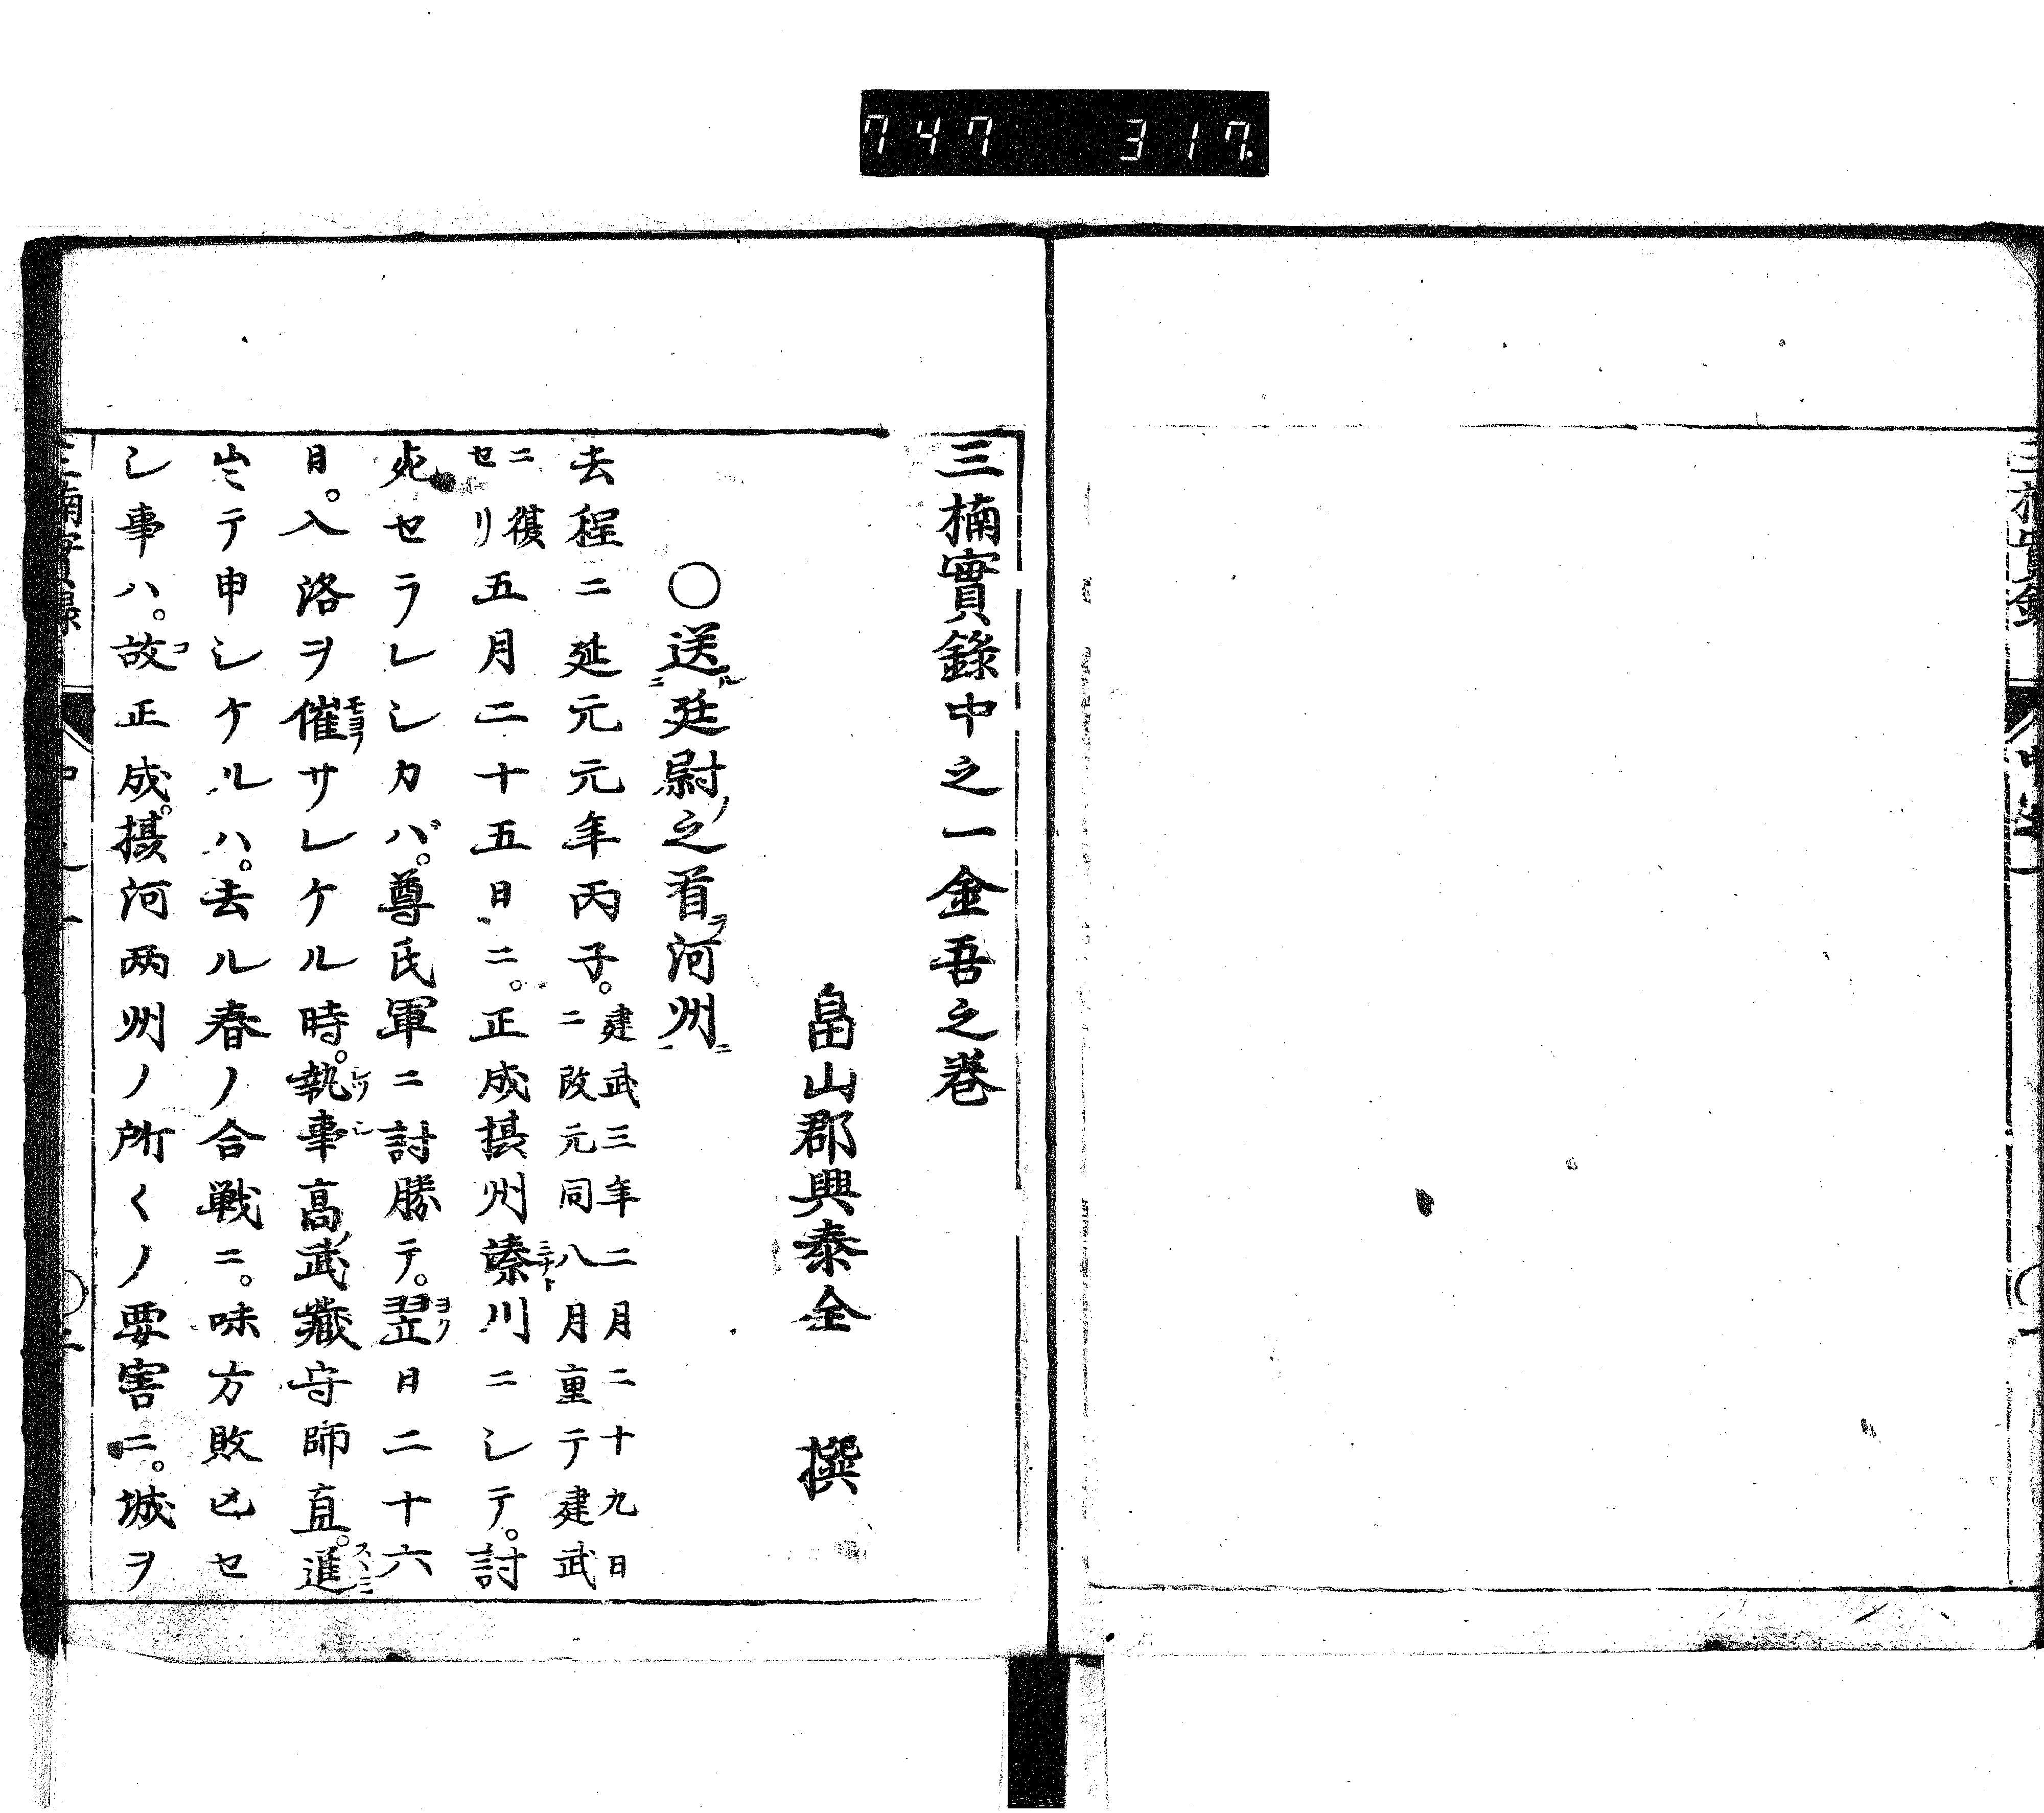 747 317.
三楠實錄中之一金吾之巻
畠山郡興泰全 撰
○送ル二廷尉ノ之首ヲ河州ニ一
去程ニ延元元年丙子。建武三年二月二十九日ニ改元同八月重テ建武
ニ復セリ五月二十五日ニ。正成摂州湊川ニシテ。討
死セラレシカバ。尊氏軍ニ討勝テ。翌日二十六
日。入洛ヲ催サレケル時。執事高武藏守師直。進
出テ申シケルハ。去ル春ノ合戦ニ。味方敗亡セ
シ事ハ。故正成。摂河両州ノ所〱ノ要害ニ。城ヲ